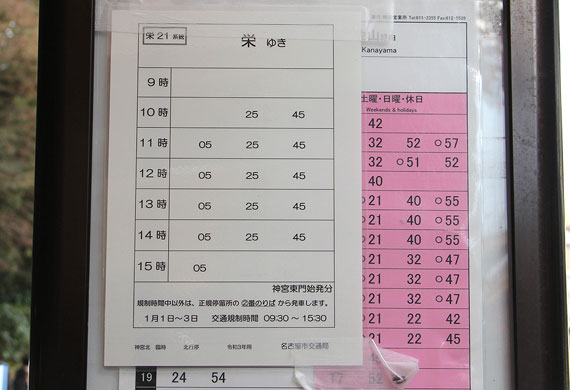 栄21系統
栄 ゆき
9時
10時 25 45
11時 05 25 45
12時 05 25 45
13時 05 25 45
14時 05 25 45
15時 05
神宮東門始発分
規制時間中以外は、正規停留所の ②番のりば から発車します。
1月1日~3日 交通規制時間 09:30 ~ 15:30
神宮北 臨時 北行停 令和3年用 名古屋市交通局
Kanayama
土曜・日曜・休日
Weekends & holidays
42
32 52 ○57
32 ○51 52
40
21 40 ○55
21 40 ○55
21 40 ○55
21 32 ○47
21 32 ○47
21 32 ○47
21 22 42
22 22 45
19 24 54 17 52